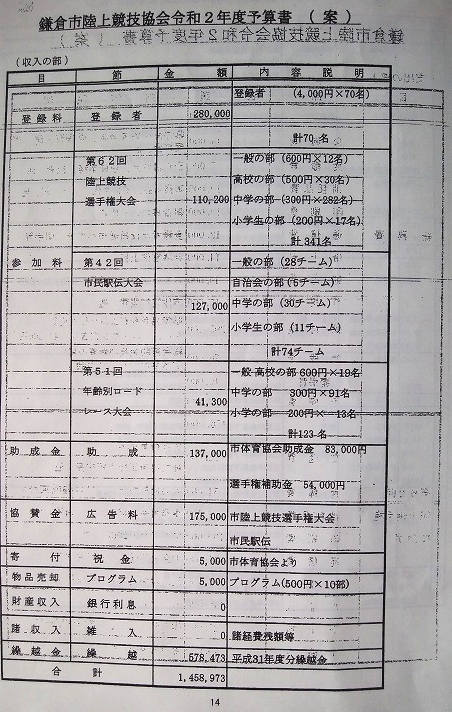 鎌倉市陸上競技協会令和2年度予算書 (案)
(収入の部)
目 節 金額 内容説明
登録者 (4,000円×70名)
登録料 登録者 280,000
計70名
第62回 一般の部 (600円×12名)
陸上競技 高校の部 (500円×30名)
選手権大会 110,200 中学の部 (300円×282名)
小学生の部 (200円×17名)
計 341名
参加料 第42回 一般の部 (28チーム)
市民駅伝大会 自治会の部 (5チーム)
127,000 中学の部 (30チーム)
小学生の部 (11チーム)
計74チーム
第51回 一般 高校の部 600円×19名
年齢別ロード 中学の部 300円×91名
レース大会 41,300 小学の部 200円× 13名
計123名
助成金 助成 137,000 市体育協会助成金 83,000円
選手権補助金 54,000円
協賛金 広告料 175,000 市陸上競技選手権大会
市民駅伝
寄付 祝金 5,000 市体育協会より
物品売却 プログラム 5,000 プログラム(500円×10部)
財産収入 銀行利息 0
諸収入 雑入 0 諸経費残額等
繰越金 繰越 578,473 平成31年度分繰越金
合計 1,458,973
14